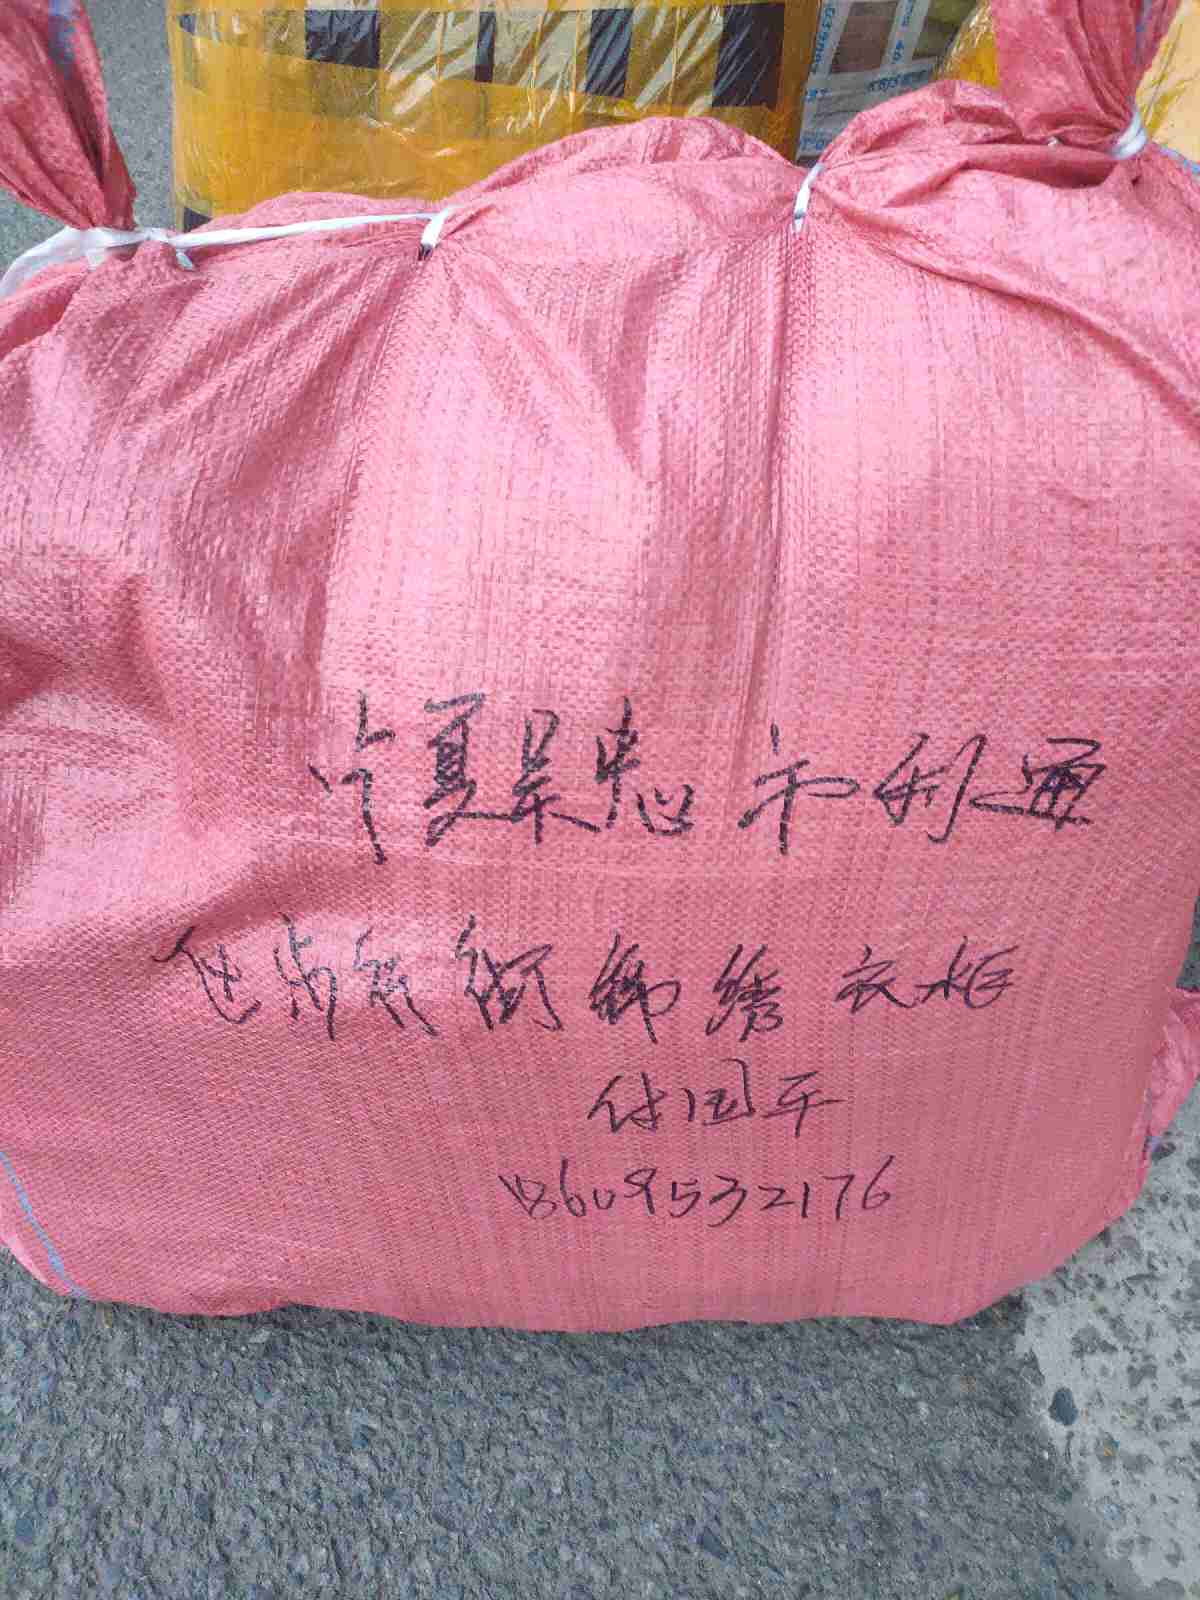 宁夏吴忠市利通
区步行街锦绣衣柜
付国平
18609532176